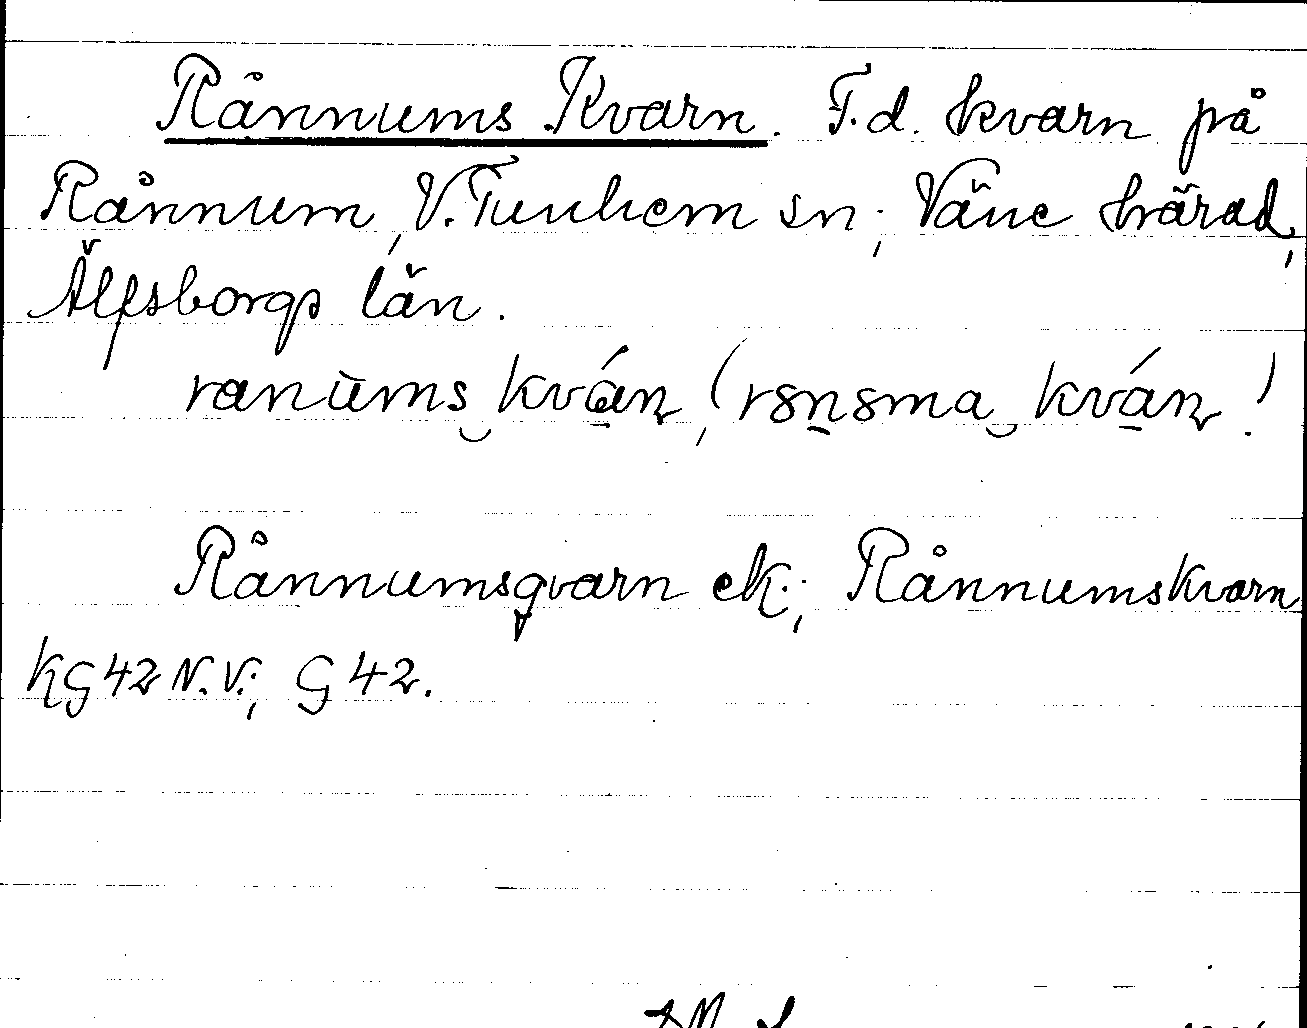 Rånnums Kvarn. F.d. kvarn på
Rånnum, V. Tunhem sn; Väne härad,
Älfsborgs län.
ranums kván, (rsnsma kván!
Rånnumsqvarn ek.; Rånnumskvarn
KG42 N.V.; G 42.